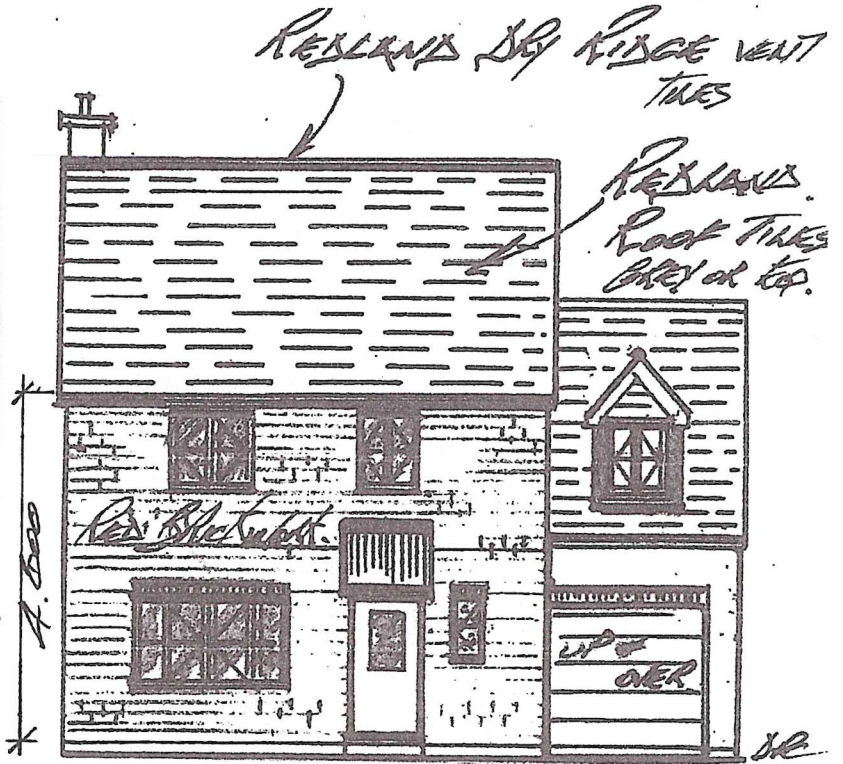 REDLAND DRY RIDGE VENT
TILES
REDLAND.
ROOF TILES
GREY OR RED.
RED BRICKWORK.
4.600
UP &
OVER